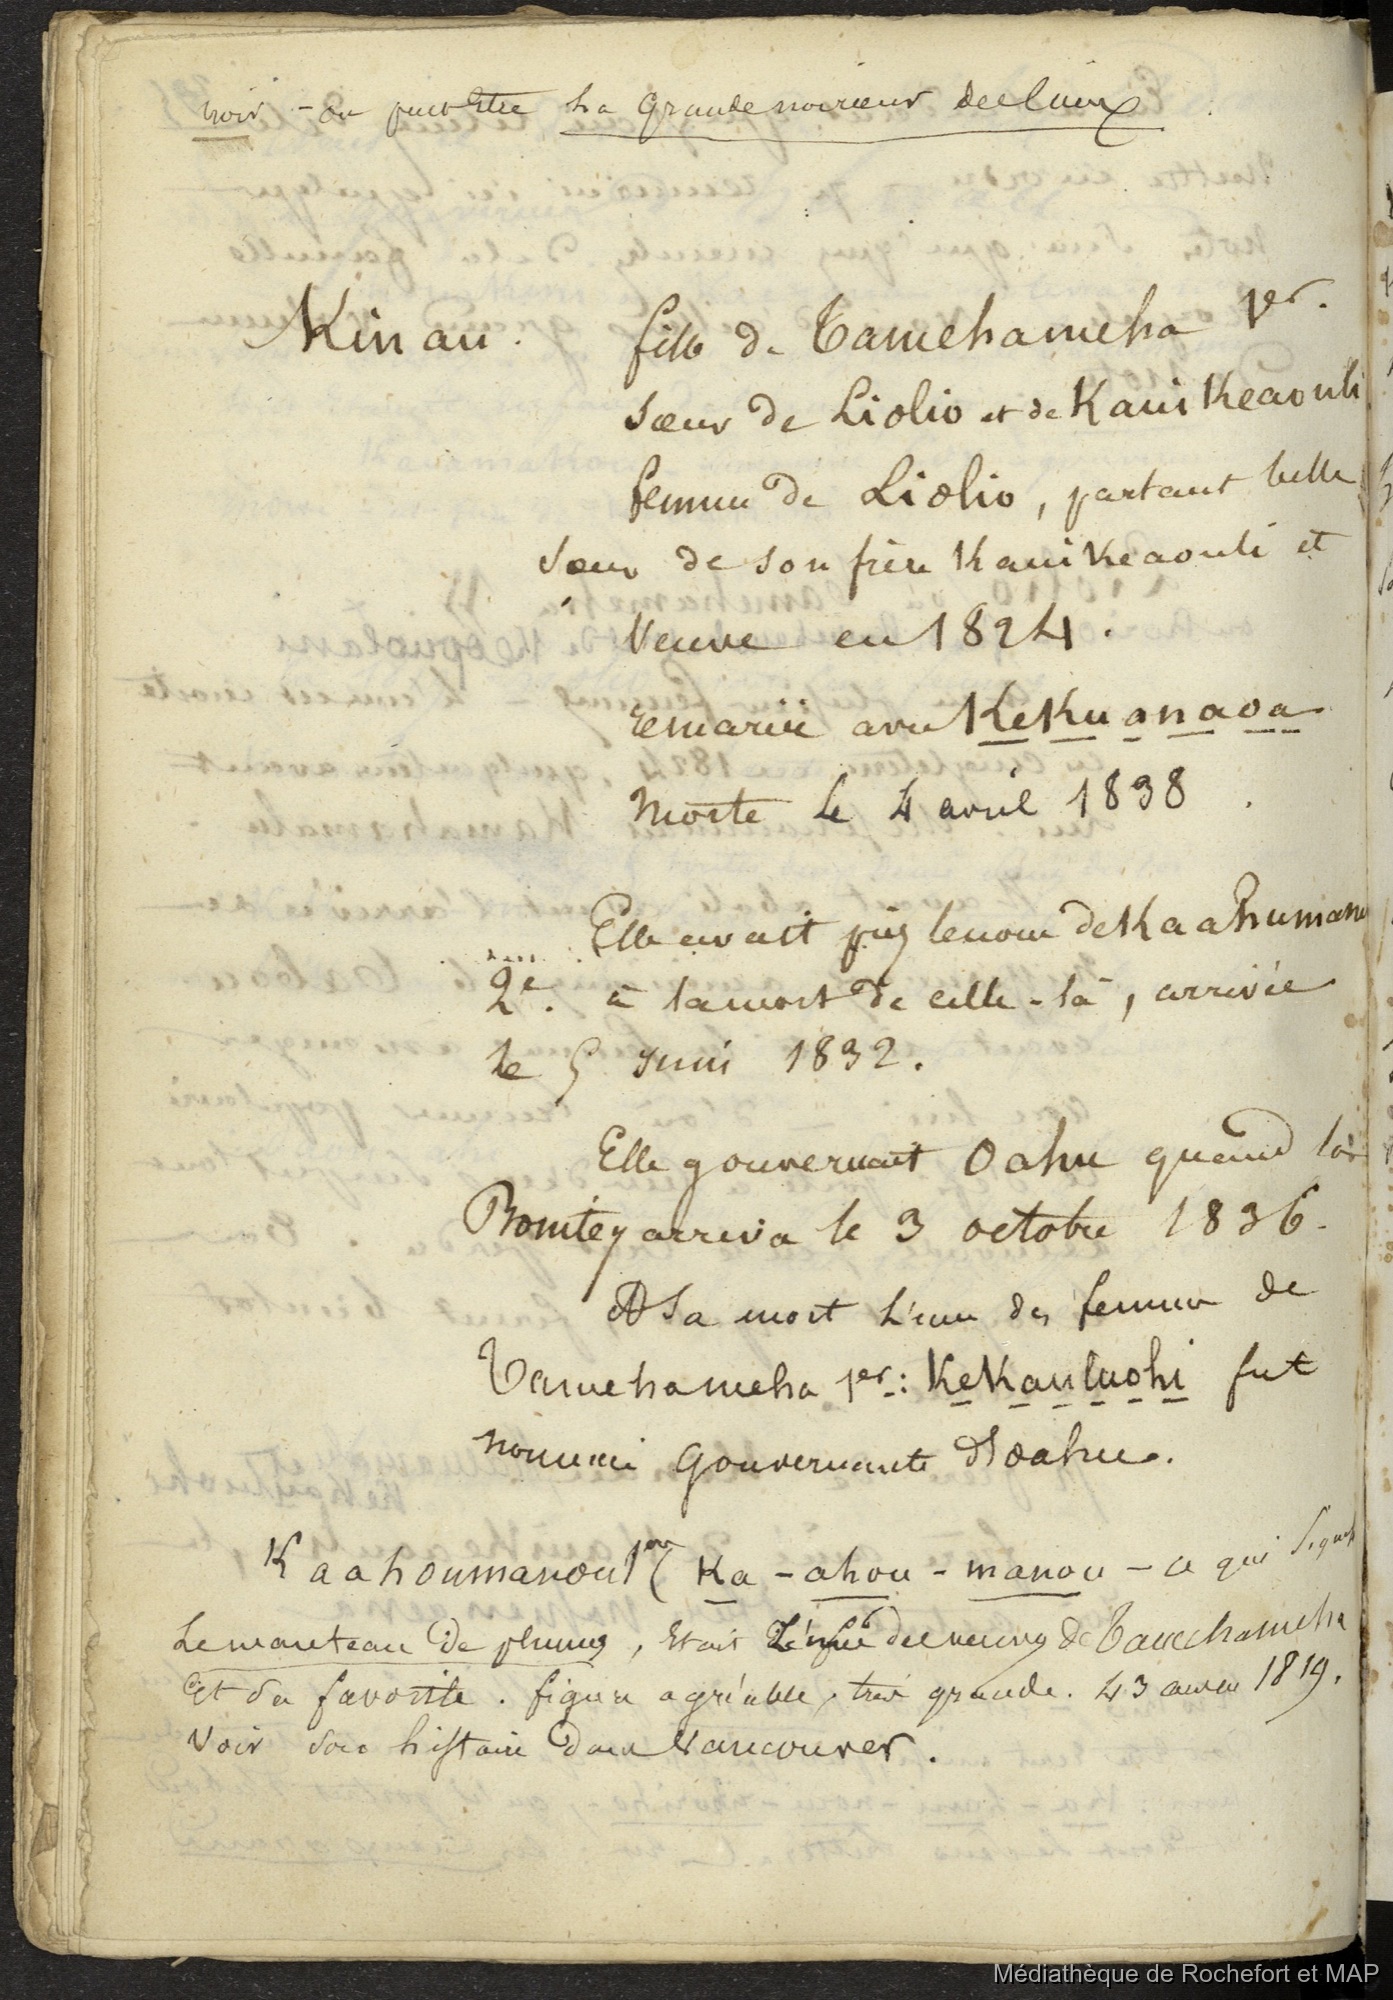 noir - ou peut être la grande noirceur des lieux
Kinau. fille de Tamehameha 1er.
Sœur de Liolio et de Kauikeaouli
femme de Liolio, partant belle
sœur de son frère Kauikeaouli et
Veuve en 1824.
remariée avec Kekuanaoa
Morte le 4 avril 1838.
Elle avait pris le nom de Kaahumanu
2e. à la mort de celle-là, arrivée
le 5 Juin 1832.
Elle gouvernait Oahu quand la
Bonitey arriva le 3 octobre 1836.
A Sa mort l'une des femmes de
Tamehameha 1er: Kekauluohi fut
nommée Gouvernante d'oahu.
Kaahoumanou 1ere (Ka-ahou-manou - ce qui signifie
Le manteau de plumes, Etait des veuves de Tamehameha
Et sa favorite. figure agréable, très grande. 43 ans en 1819.
Voir son histoire dans Vancouver.
Médiathèque de Rochefort et MAP